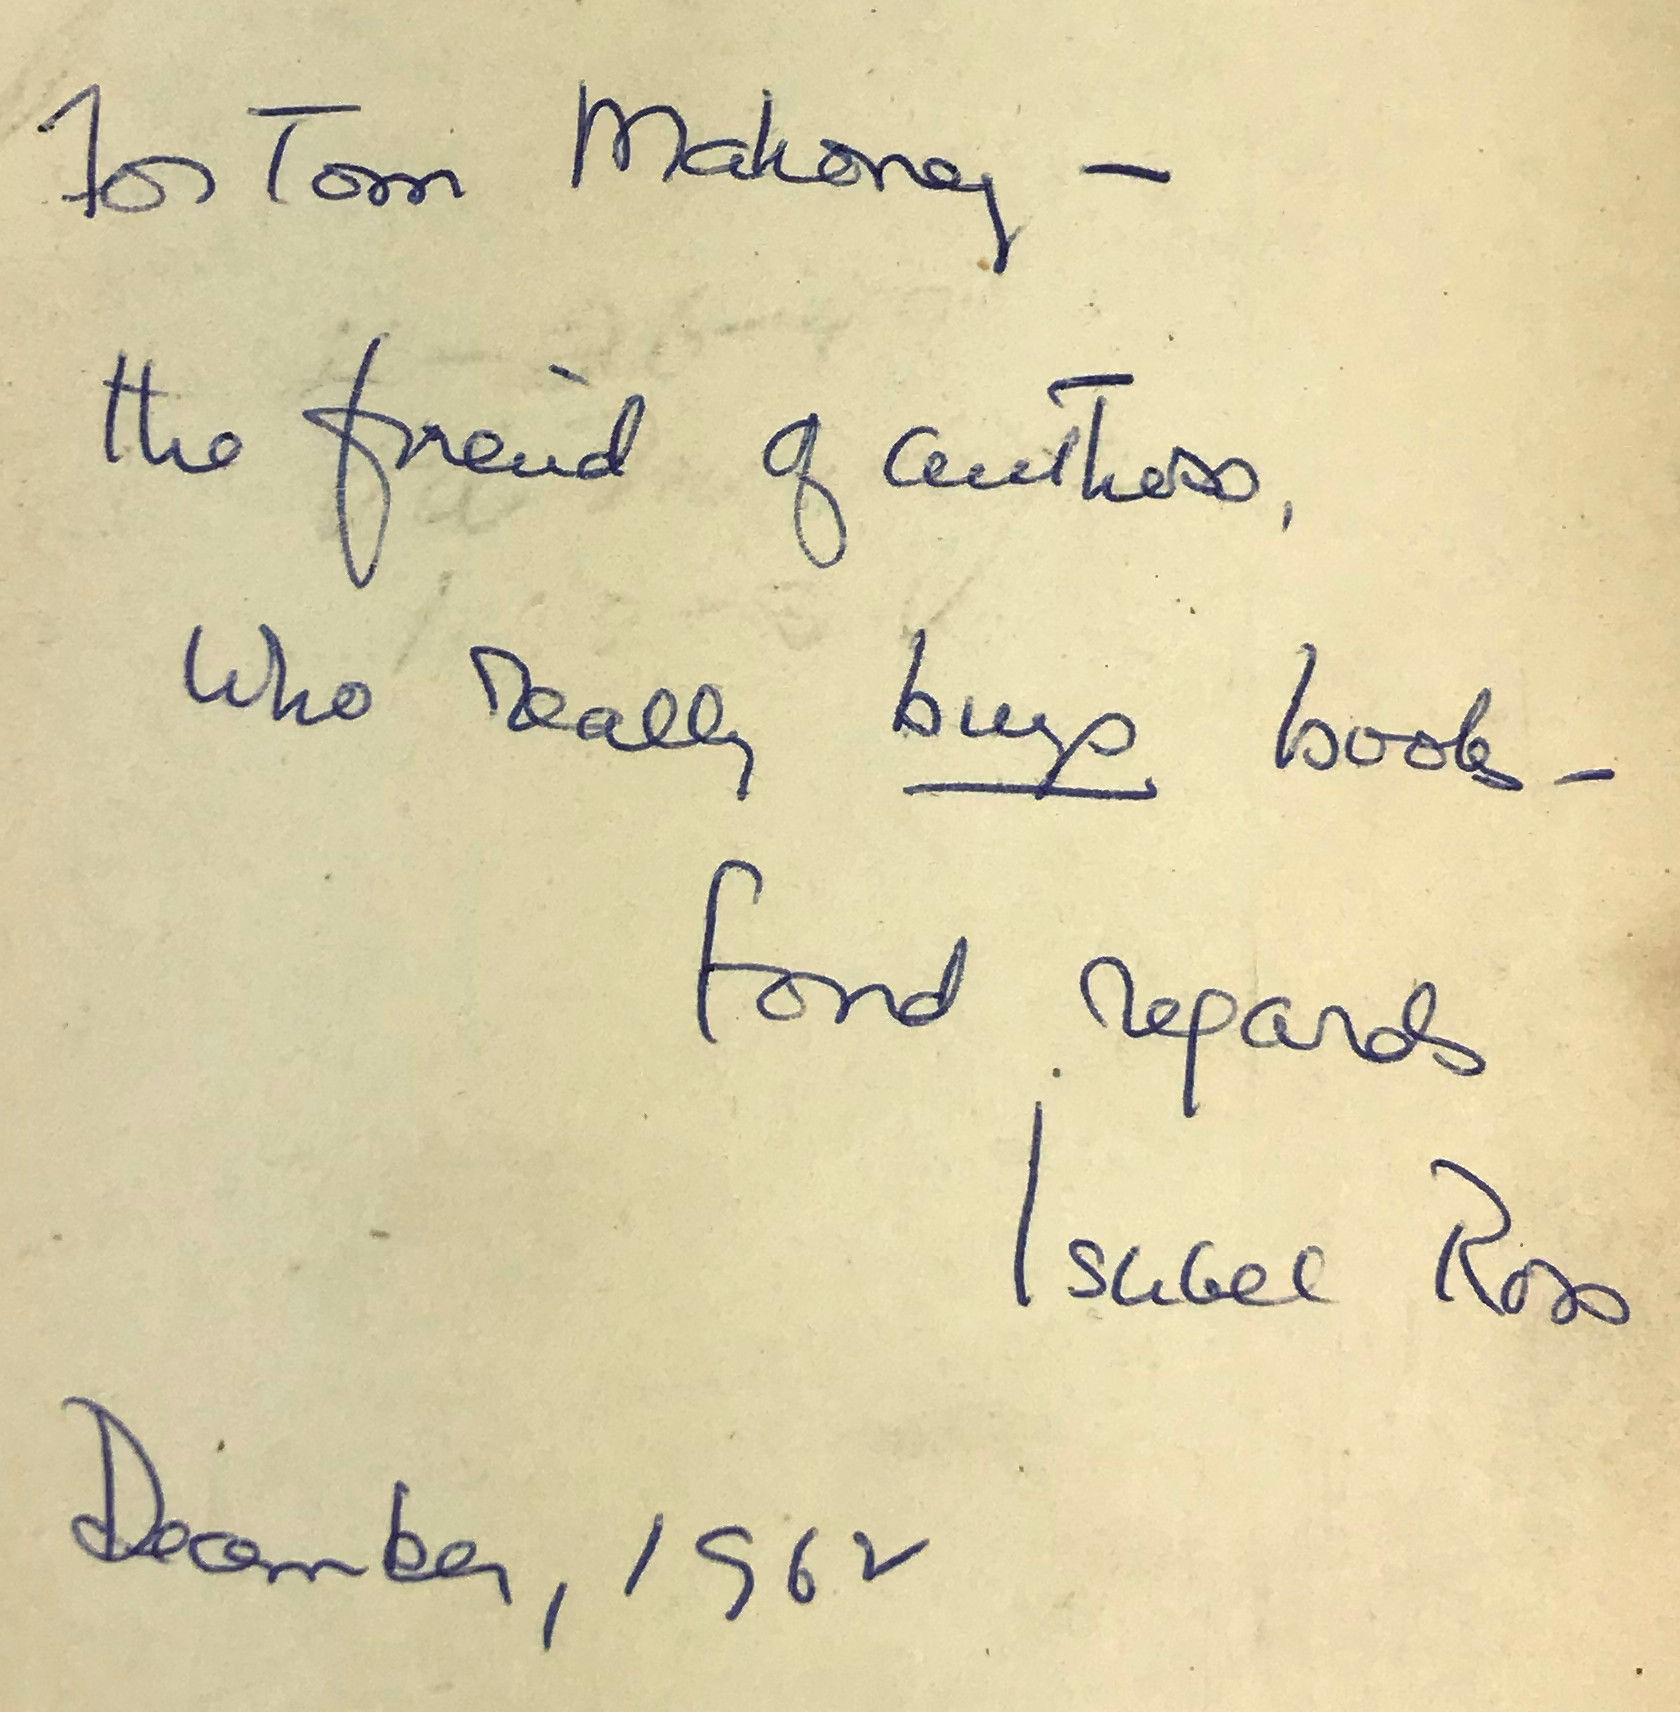 For Tom Mahoney -
the friend of authors,
who really buys books -
Fond regards
Isabel Ross
December, 1962